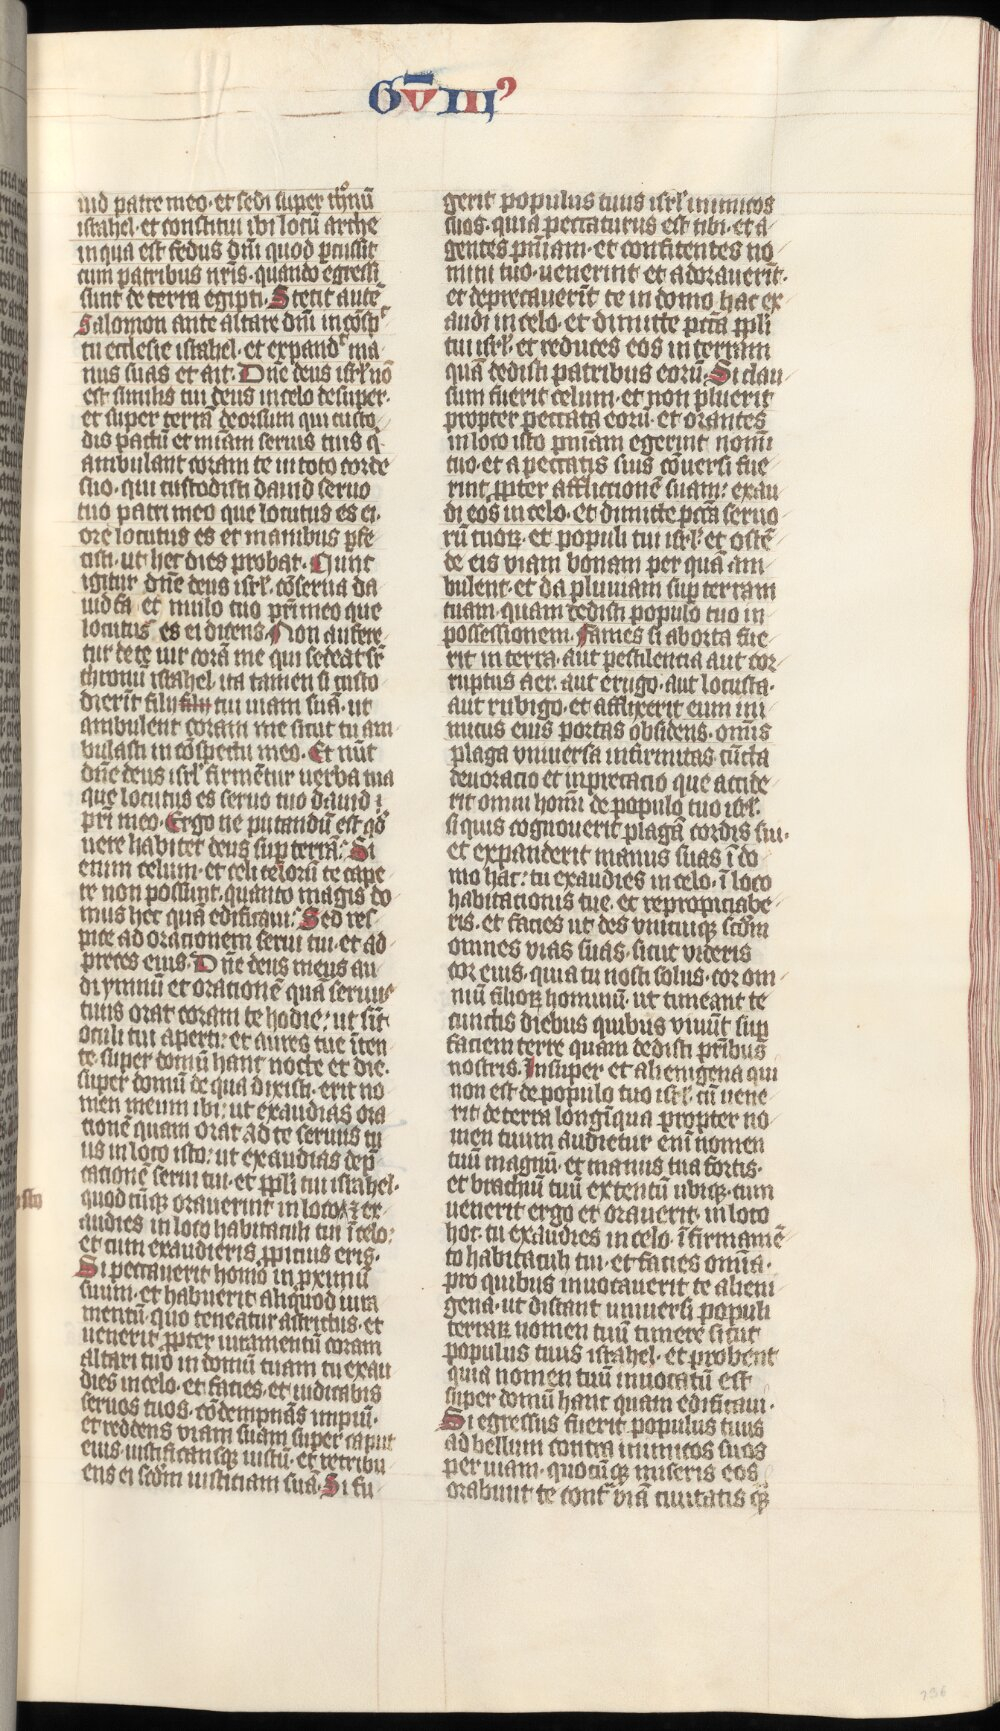 G V III⁹
uid patre meo· et sedi super thͦnū
israhel· et constitui ibi locū arche
in qua est fedus dn̄i quod pcussit
cum patribus nr̄is· quando egressi
sunt de terra egipti· Stetit autē
Salomon ante altare dn̄i in cōsp̄c
tu ecclesie israhel· et expandͨ ma
nus suas et ait· Dn̄e deus isrl̓ nō
est similis tui deus in celo desuper·
et super terrā deorsum qui custo
dis pactū et miām seruis tuis q̄
ambulant coram te in toto corde
suo· qui custodisti dauid seruo
tuo patri meo que locutus es ei·
ore locutus es et manibus p̱fe
cisti· ut hec dies probat· Nunc
igitur dn̄e deus isrl̓· cōserua da
uid fa et muilo tuo pr̄i meo que
locutus es ei dicens· Non aufere
tur de te uir corā me qui sedeat sr̄
thronū israhel· ita tamen si custo
dierīt filii filii tui uiam suā· ut
ambulent coram me sicut tu am
bulasti in cōspectu meo· Et nūc
dn̄e deus isrl̓ firmētur uerba tua
que locutus es seruo tuo dauid
pr̄i meo· Ergo ne putandū est qd̄
uere habitet deus sup terrā· Si
enim celum· et celi celorū te cape
re non possunt· quanto magis do
mus hec quā edificaui· Sed res
pice ad orationem serui tui· et ad
preces eius· Dn̄e deus meus au
di ymnū et orationē quā seruus
tuus orat coram te hodie· ut sīt
oculi tui aperti· et aures tue īten
te super domū hanc nocte et die·
super domū de qua dixisti· erit no
men meum ibi· ut exaudias ora
tionē quam orat ad te seruus tu
us in loco isto· ut exaudias dep̄
cationē serui tui· et ppl̓i tui israhel·
quodcūq̢ orauerint in loco ⁊ ex
audies in loco habitaculi tui ī celo·
et cum exaudieris ꝓpicius eris·
Si peccauerit homo in pximū
suum· et habuerit aliquod iura
mentū quo teneatur astrictus· et
uenerit ꝓpter iuramentū coram
altari tuo in domū tuam tu exau
dies in celo· et facies· et iudicabis
seruos tuos· cōdempnās impiū·
et reddens viam suam super caput
eius· iustificansq̢ iustū· et retribu
ens ei scdm̄ iusticiam suā· Si fu
gerit populus tuus isrl̓ inimicos
suos· quia peccaturus est tibi· et a
gentes pn̄iam· et confitentes no
mini tuo· uenerint et adorauerīt·
et deprecauerīt te in domo hac ex
audi in celo· et dimitte pcc̄a ppl̓i
tui isrl̓· et reduces eos in terram
quā dedisti patribus eorū· Si clau
sum fuerit celum· et non pluerit
propter peccata eorū· et orantes
in loco isto pn̄iam egerint nomī
tuo· et a peccatis suis cōuersi fue
rint ꝓpter afflictionē suam· exau
di eos in celo· et dimitte pcc̄a seruo
rū tuorꝫ· et populi tui isrl̓· et ostē
de eis viam bonam per quā am
bulent· et da pluuiam sup terram
tuam· quam dedisti populo tuo in
possessionem· Fames si aborta fue
rit in terra· aut pestilencia aut cor
ruptus aer· aut erugo· aut locusta·
aut rubigo· et afflixerit eum ini
micus eius portas obsidens· om̄is
plaga vniuersa infirmitas cūcta
deuoracio et inprecacio que accide
rit omni homī de populo tuo isrl̓·
si quis cognouerit plagā cordis sui·
et expanderit manus suas ī do
mo hac· tu exaudies in celo· ī loco
habitationis tue· et repropiciabe
ris· et facies ut des vnicuiq̢ scdm̄
omnes vias suas· sicut videris
cor eius· quia tu nosti solus· cor om
niū filiorꝫ hominū· ut timeant te
cunctis diebus quibus viuūt sup
faciem terre quam dedisti pr̄ibus
nostris· Insuper et alienigena qui
non est de populo tuo isrl̓· cū uene
rit de terra longīqua propter no
men tuum audietur enī nomen
tuū magnū· et manus tua fortis·
et brachiū tuū extentū ubiq̢· cum
uenerit ergo et orauerit· in loco
hoc· tu exaudies in celo· ī firmamē
to habitaculi tui· et facies omīa·
pro quibus inuocauerit te alieni
gena· ut discant uniuersi populi
terrarꝫ nomen tuū timere sicut
populus tuus israhel· et probent
quia nomen tuū inuocatū est
super domū hanc quam edificaui·
Si egressus fuerit populus tuus
ad bellum contra inimicos suos
per uiam· quocūq̢ miseris eos
orabunt te contͣ viā ciuitatis q̢
236